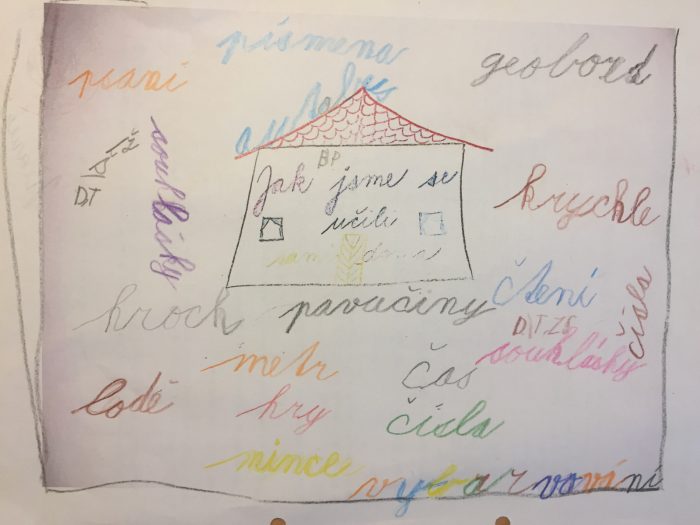 písmena
geoboard
psaní
autobus
souhlásky
DT
BP
Jak jsme se
učili
sami doma
krychle
čtení
čísla
hroch
pavučiny
DTZS
souhlásky
metr
čas
lodě
hry
čísla
mince
vybarvování